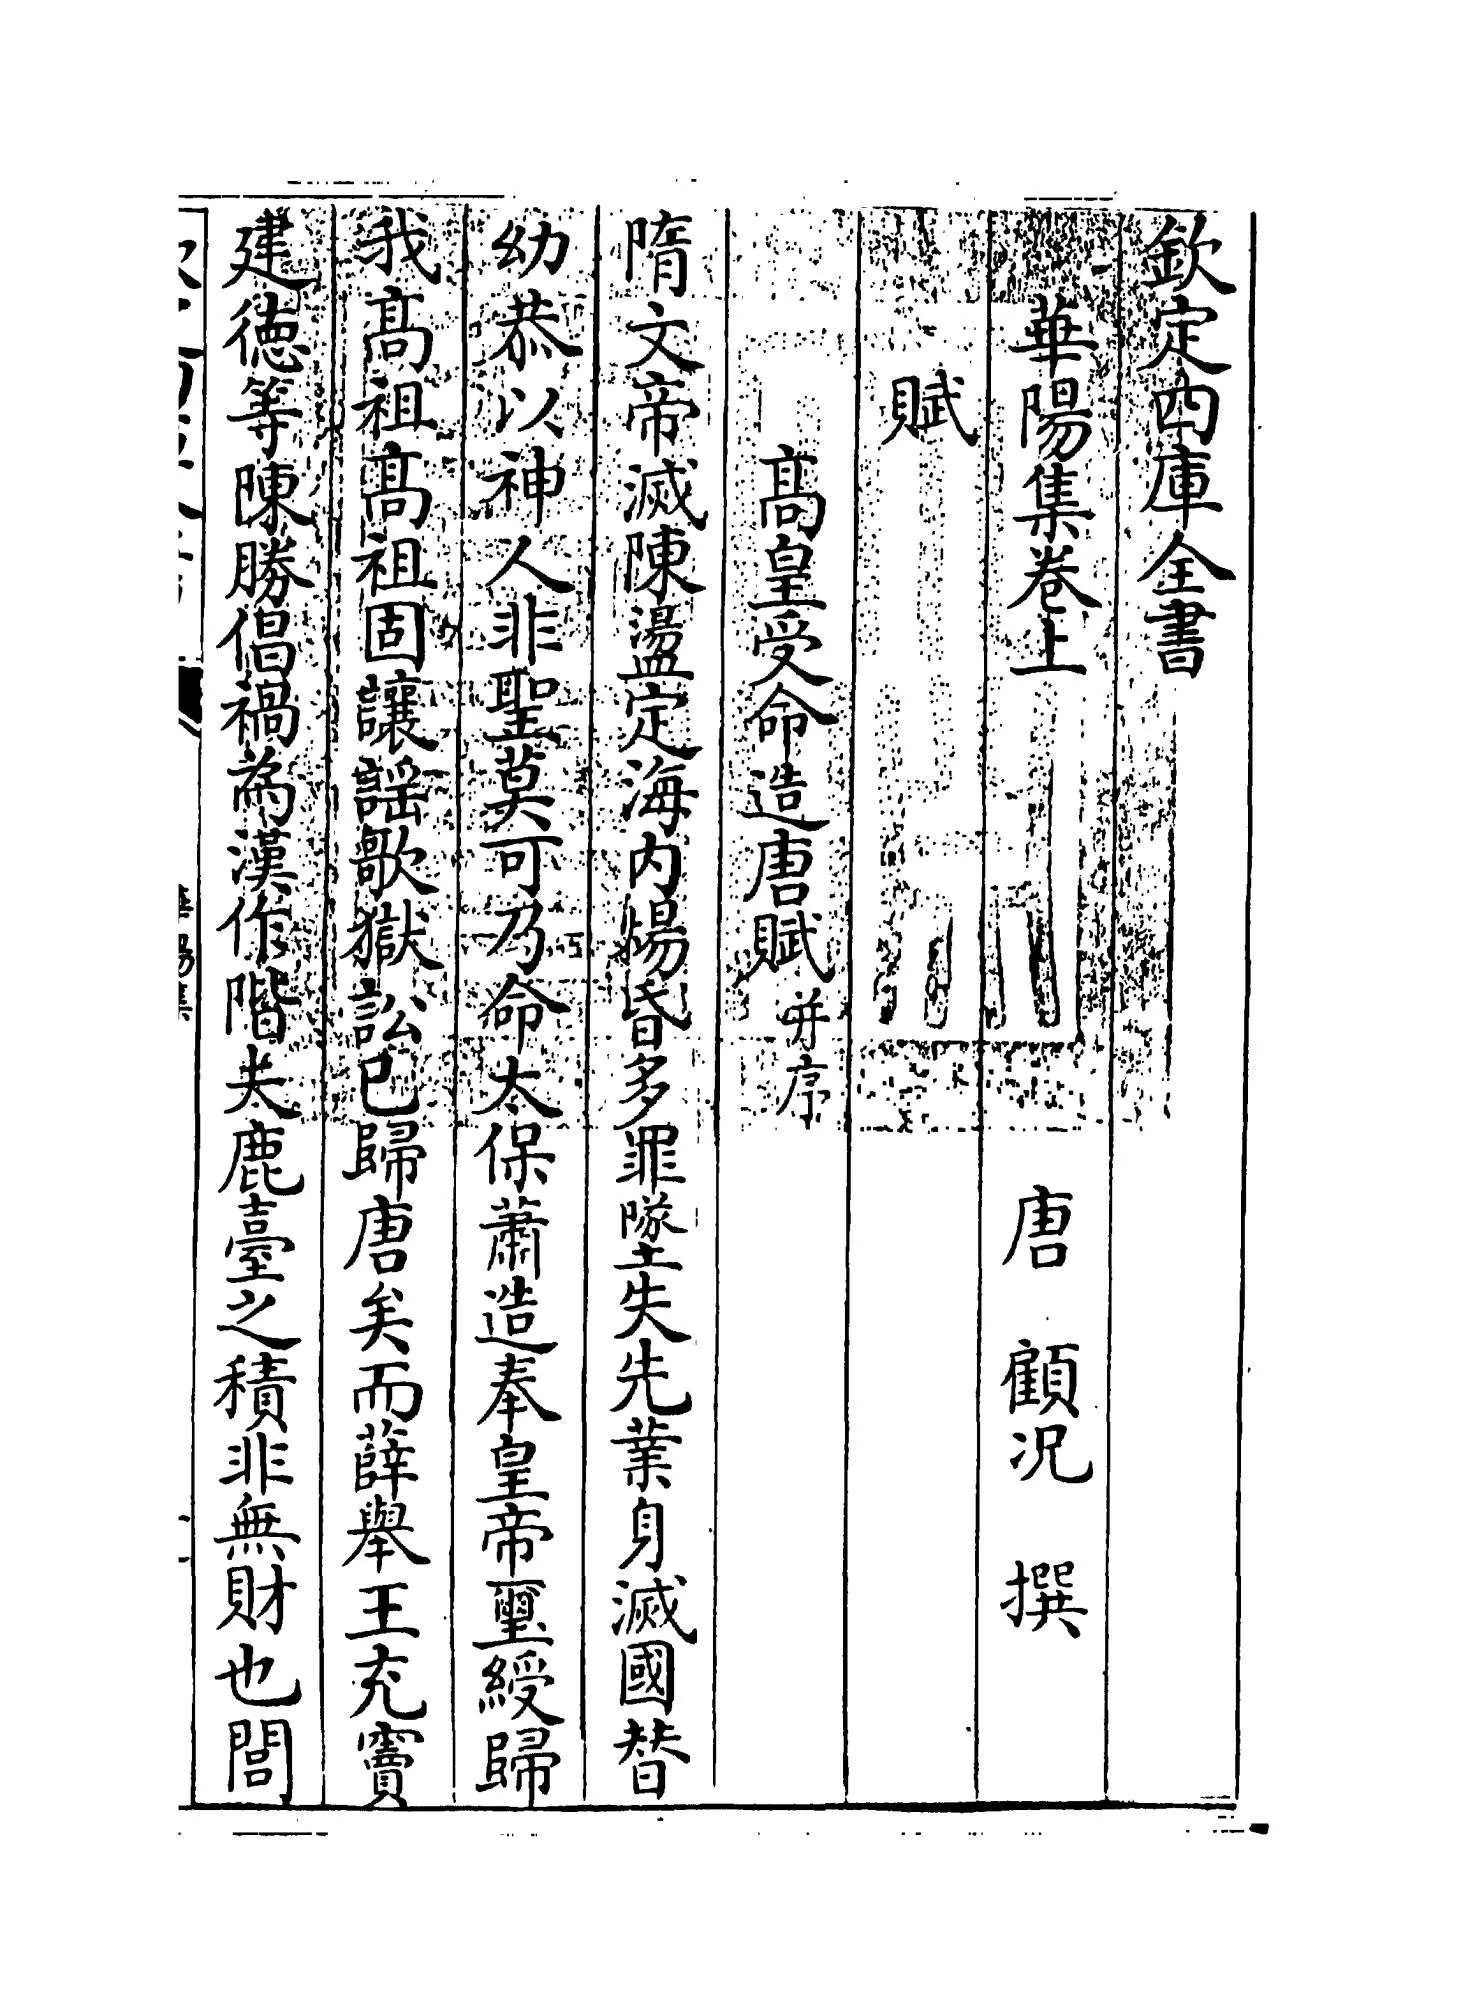 欽定四庫全書
華陽集卷上 唐 顧況 撰
賦
高皇受命造唐賦并序
隋文帝滅陳盪定海内煬昏多罪墜失先業身滅國替
幼恭以神人非聖莫可乃命太保蕭造奉皇帝璽綬歸
我髙祖髙祖固讓謡歌獄訟已歸唐矣而薛舉王充竇
建徳等陳勝倡禍為漢作階夫鹿臺之積非無財也閭
華陽集